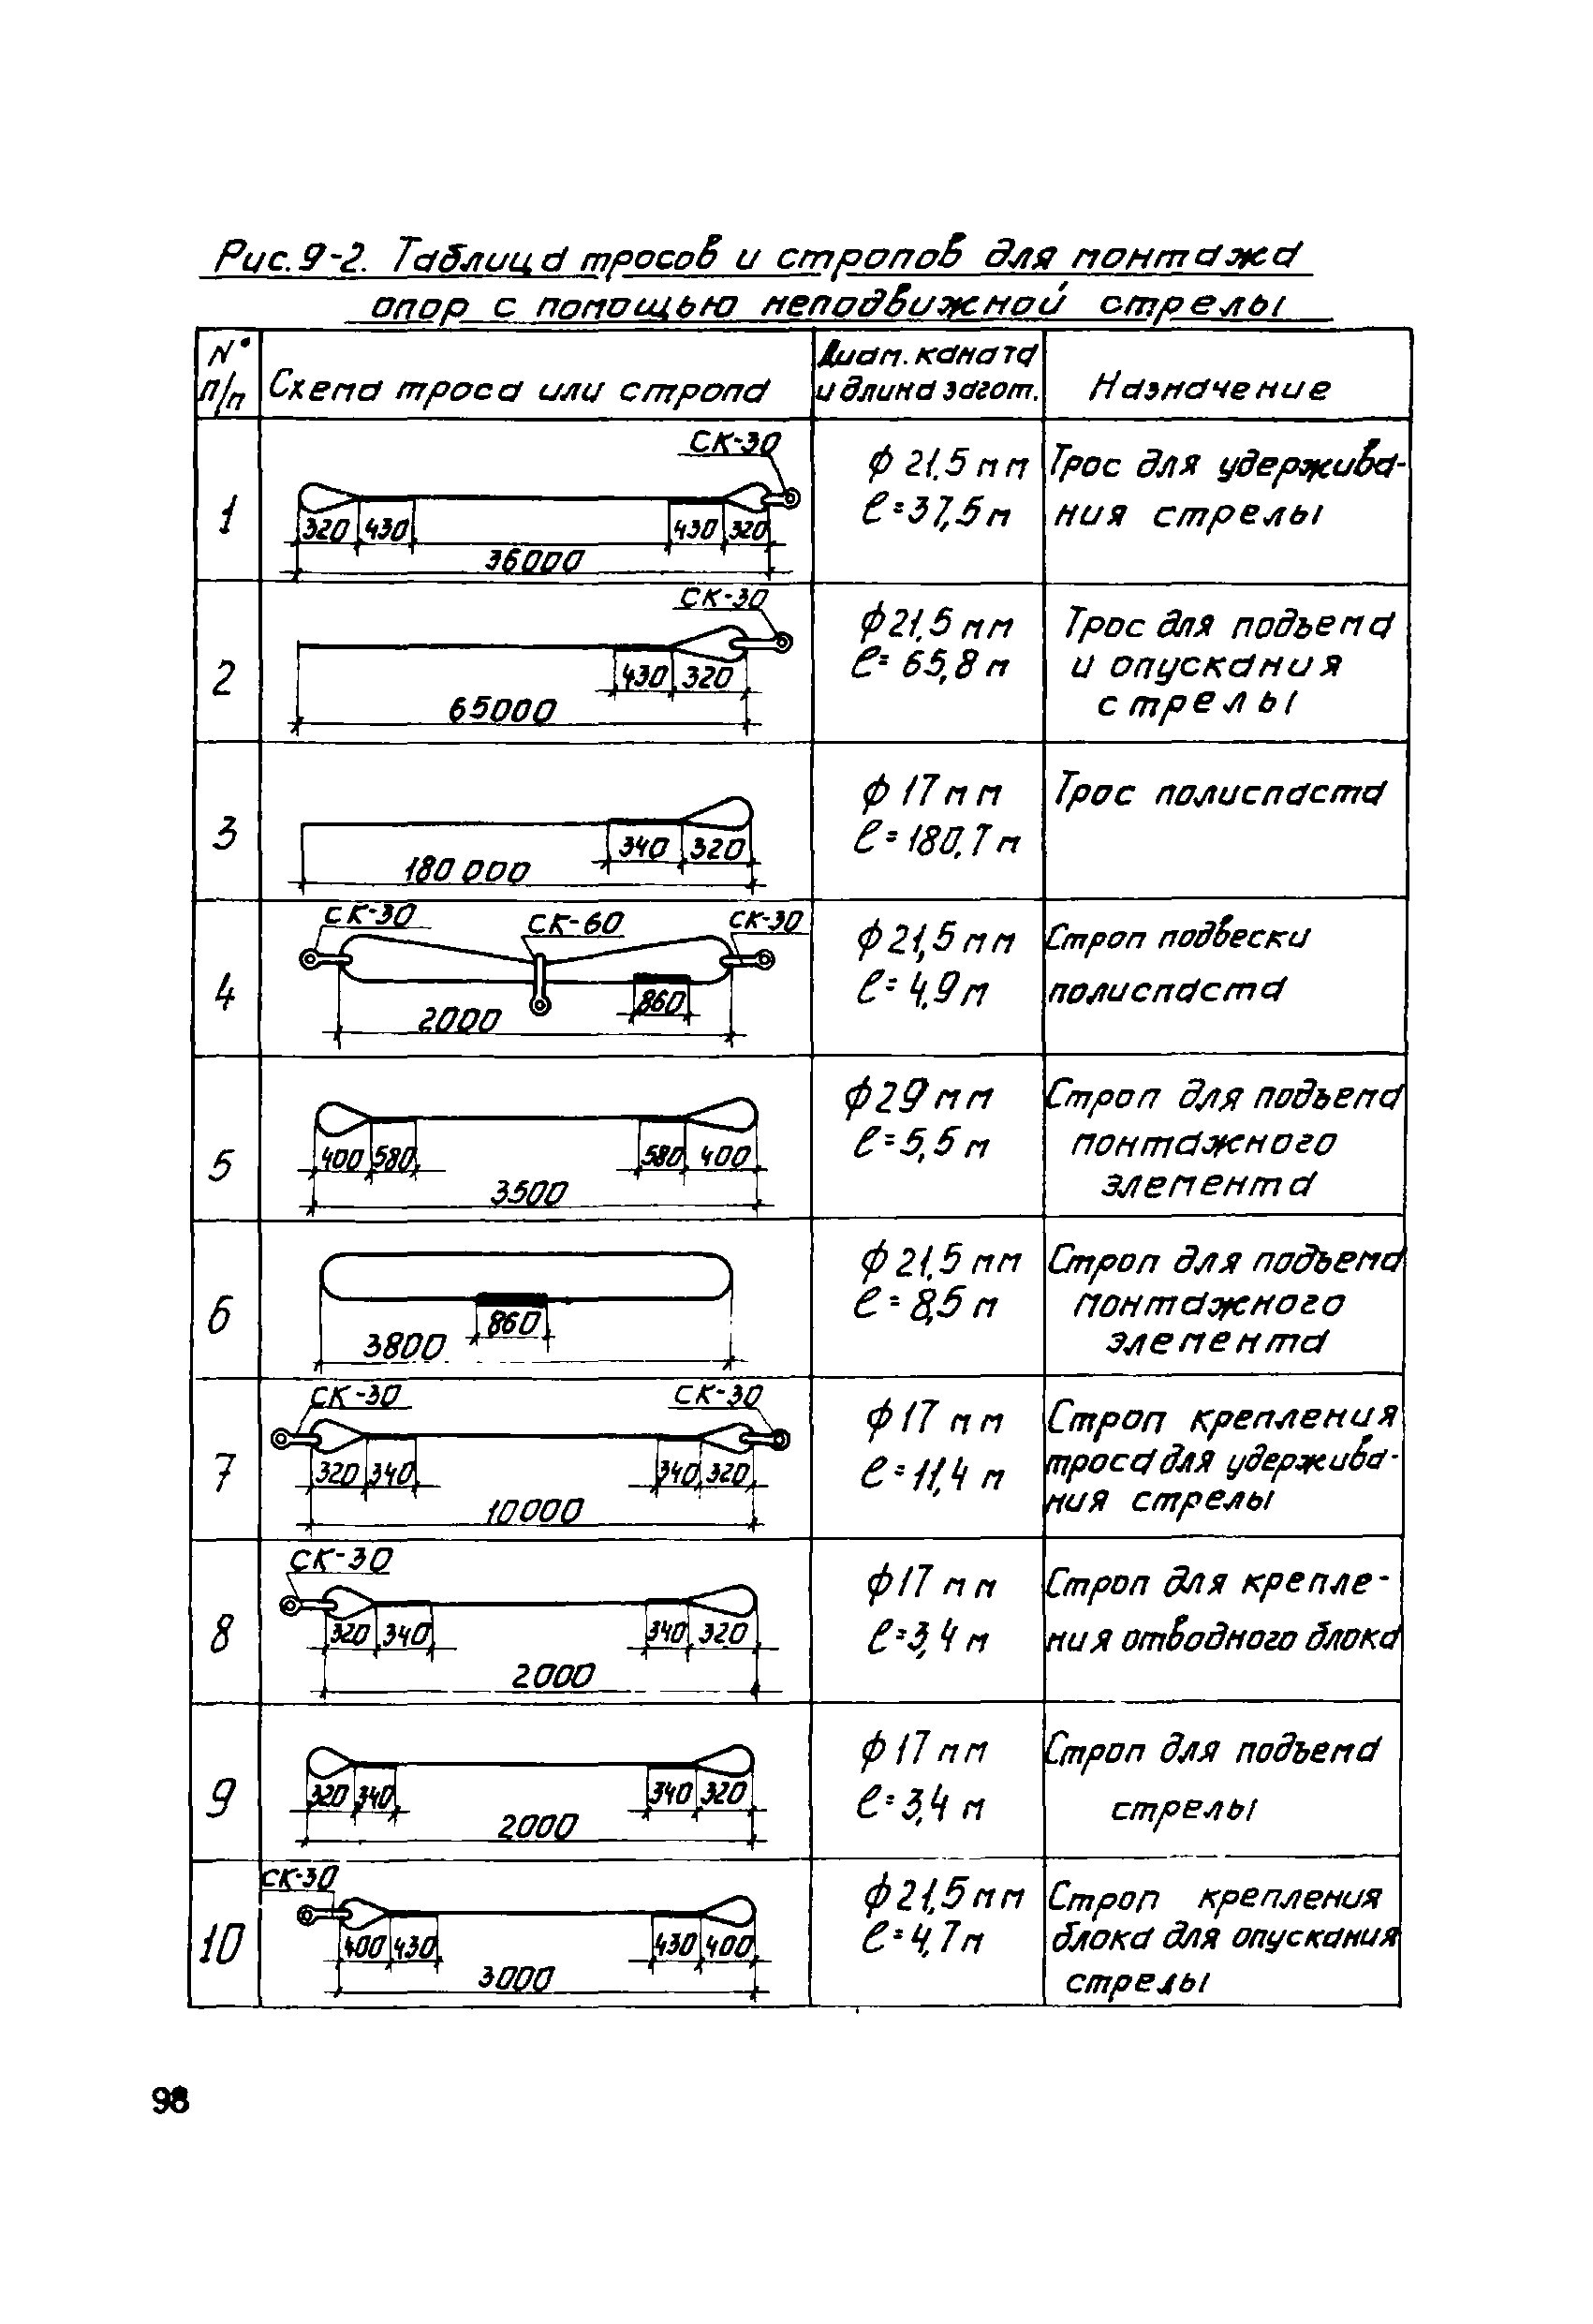 Рис. 9-2. Таблица тросов и стропов для монтажа
опор с помощью неподвижной стрелы
№ п/п
Схема троса или стропа
Диам. каната
и длина загот.
Назначение
1
СК-30
320 430 430 320
36000
ϕ 21,5 мм
ℓ=37,5 м
Трос для удержива-
ния стрелы
2
СК-30
430 320
65000
ϕ 21,5 мм
ℓ= 65,8 м
Трос для подъема
и опускания
стрелы
3
340 320
180 000
ϕ 17 мм
ℓ= 180,7 м
Трос полиспаста
4
СК-30 СК-60 СК-30
860
2000
ϕ 21,5 мм
ℓ= 4,9 м
Строп подвески
полиспаста
5
400 580 580 400
3500
ϕ 29 мм
ℓ=5,5 м
Строп для подъема
монтажного
элемента
6
860
3800
ϕ 21,5 мм
ℓ= 8,5 м
Строп для подъема
монтажного
элемента
7
СК-30 СК-30
320 340 340 320
10000
ϕ 17 мм
ℓ=11,4 м
Строп крепления
троса для удержива-
ния стрелы
8
СК-30
320 340 340 320
2000
ϕ 17 мм
ℓ=3,4 м
Строп для крепле-
ния отводного блока
9
320 340 340 320
2000
ϕ 17 мм
ℓ=3,4 м
Строп для подъема
стрелы
10
СК-30
400 430 430 400
3000
ϕ 21,5 мм
ℓ=4,7 м
Строп крепления
блока для опускания
стрелы
98